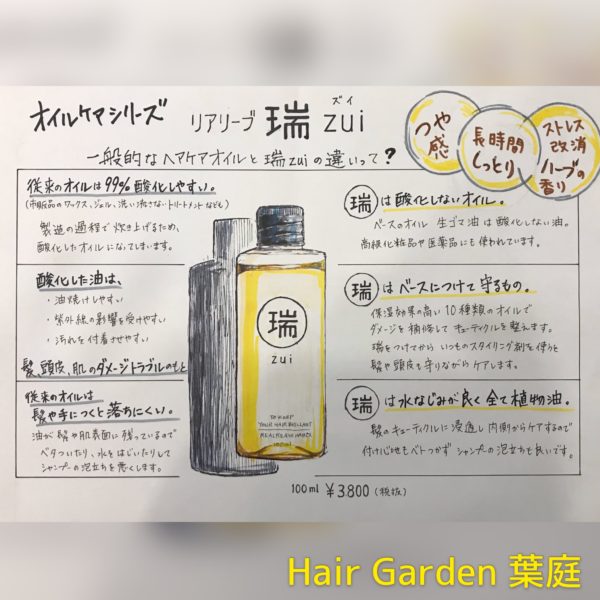 オイルケアシリーズ リアリーブ 瑞 zui
ズイ
つや感
長時間しっとり
ストレス改消
ハーブの香り
一般的なヘアケアオイルと瑞zuiの違いって?
従来のオイルは99%酸化しやすい。
(市販品のワックス、ジェル、洗い流さないトリートメントなども)
製造の過程で炊き上げるため、
酸化したオイルになってしまいます。
酸化した油は、
・油焼けしやすい
・紫外線の影響を受けやすい
・汚れを付着させやすい
髪、頭皮、肌のダメージトラブルのもと
従来のオイルは
髪や手につくと落ちにくい。
油が髪や肌表面に残っているので
ベタついたり、水をはじいたりして
シャンプーの泡立ちを悪くします。
瑞
zui
TO KEEP
YOUR HAIR BRILLIANT
100ml
瑞は酸化しないオイル。
ベースのオイル 生ゴマ油は酸化しない油。
高級化粧品や医薬品にも使われています。
瑞はベースにつけて守るもの。
保湿効果の高い10種類のオイルで
ダメージを補修してキューティクルを整えます。
瑞をつけてから いつものスタイリング剤を使うと
髪や頭皮を守りながらケアします。
瑞は水なじみが良く全て植物油。
髪のキューティクルに浸透し内側からケアするので
付け心地もベトつかず シャンプーの泡立ちも良いです。
100ml ¥3,800 (税抜)
Hair Garden 葉庭